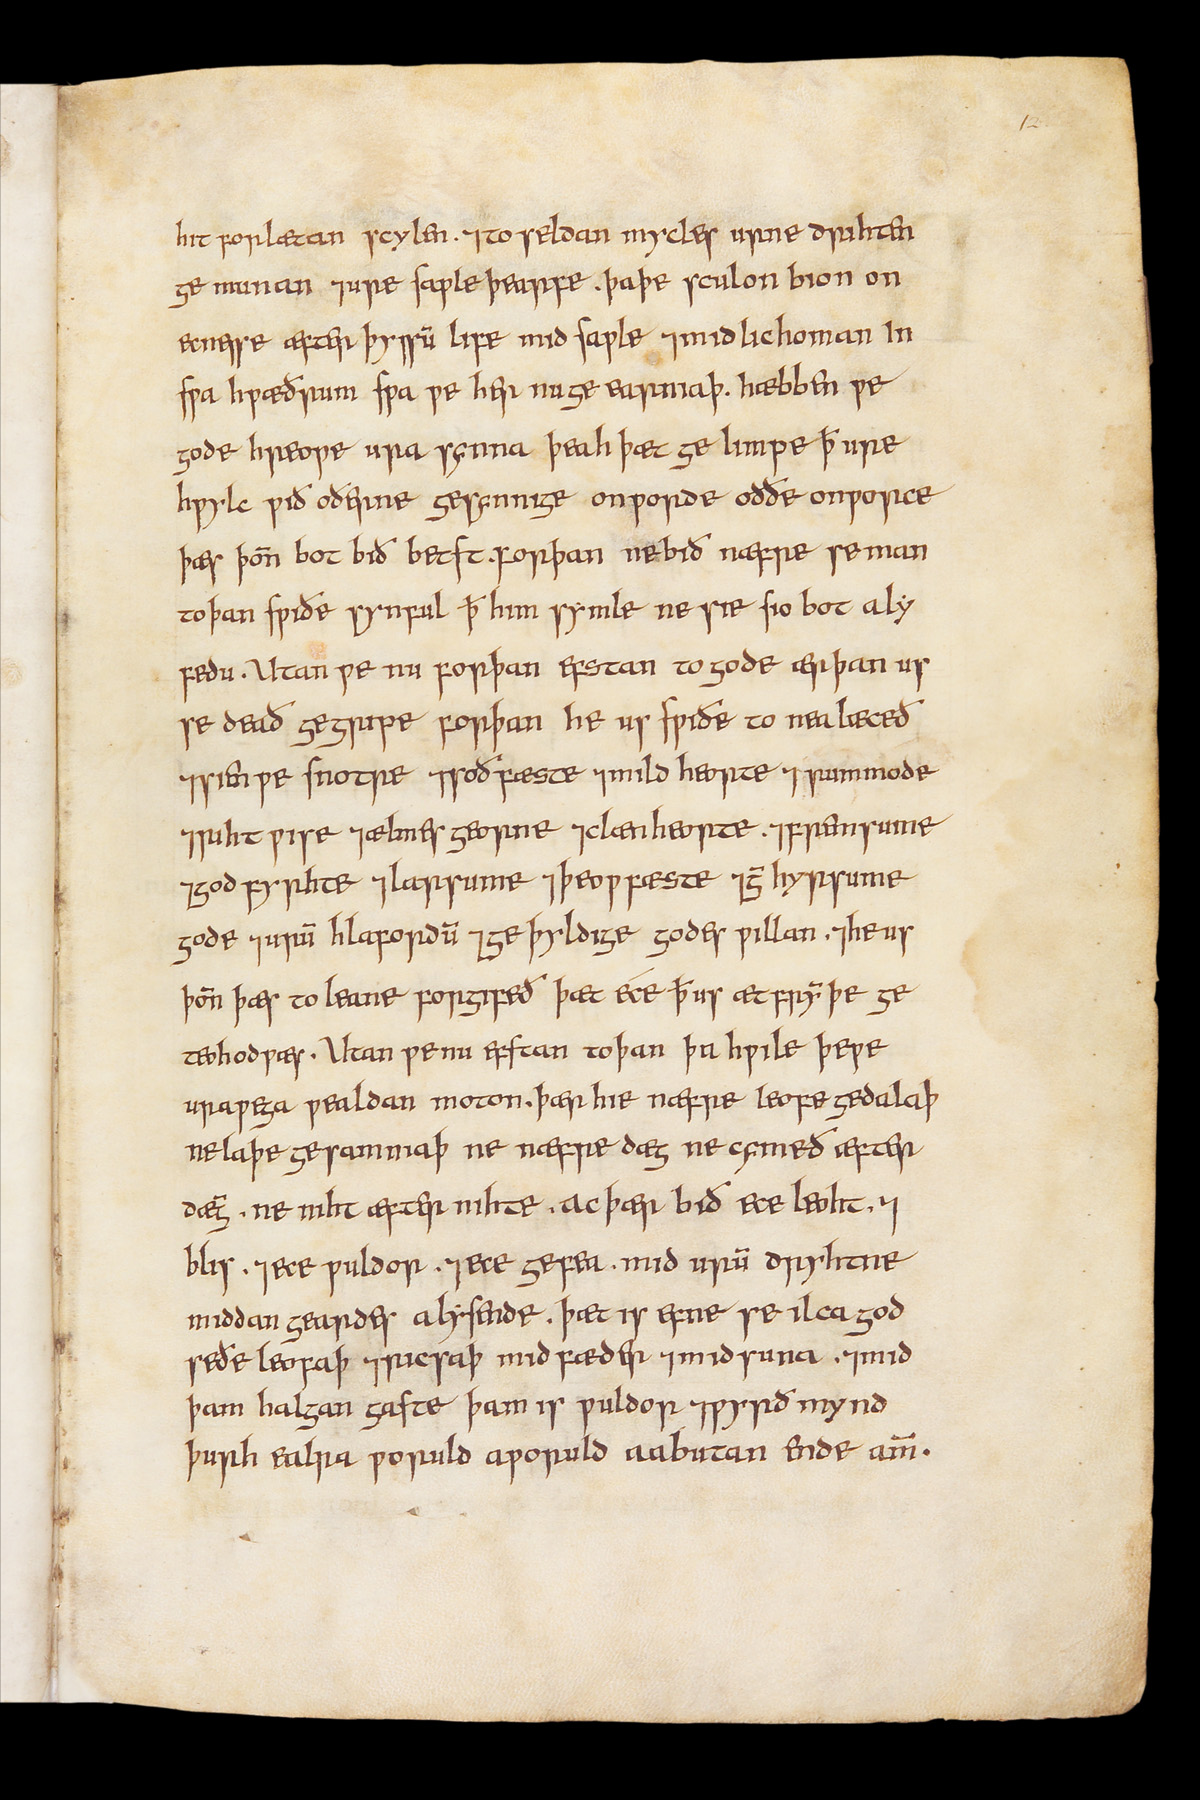 12
hit forlætan scylen · ⁊ to seldan mycles urne drihten
ge munan ⁊ ure saƿle þearfe · þa þe sculon bion on
ecnesse æfter þyssū life mid saƿle ⁊ mid lichoman in
sƿa hƿæðrum sƿa ƿe her nu ge earniaþ · hæbben ƿe
gode hreoƿe ura synna þeah þæt ge limpe ꝥ ure
hƿylc ƿið oðerne gesynnige on ƿorde oððe on ƿorce
þæs þoñ bot bið betst · forþan ne bið næfre se man
to þan sƿiðe synful ꝥ him symle ne sie sio bot a ly
fedu · Utan ƿe nu forþan efstan to gode ær þan us
se deað gegripe forþan he us sƿiðe to nea læceð
⁊ sien ƿe snotre ⁊ soðfæste ⁊ mild heorte ⁊ rummode
⁊ riht ƿise ⁊ ælmes georne ⁊ clæn heorte · ⁊ fremsume
⁊ god fyrhte ⁊ larsume ⁊ þeoƿ fæste ⁊ ḡ hyrsume
gode ⁊ urū hlafordū ⁊ ge þyldige godes ƿillan · ⁊ he us
þoñ þæs to leane forgifeð þæt ece ꝥ us æt frȳ þe ge
teohod ƿæs · Utan ƿe nu efstan to þan þa hƿile þe ƿe
ura ƿega ƿealdan moton · þær hie næfre leofe gedalaþ
ne laþe gesamniaþ ne næfre dæg ne cymeð æfter
dæḡ · ne niht æfter nihte · ac þær bið ece leoht · ⁊
blis · ⁊ ece ƿuldor · ⁊ ece gefea · mid urū dryhtne
middan geardes alysende · þæt is efne se ilca god
se ðe leofaþ ⁊ ricsaþ mid fæder ⁊ mid suna · ⁊ mid
þam halgan gaste þam is ƿuldor ⁊ ƿyrð mynd
þurh ealra ƿoruld a ƿoruld a abutan ende am̄ ·